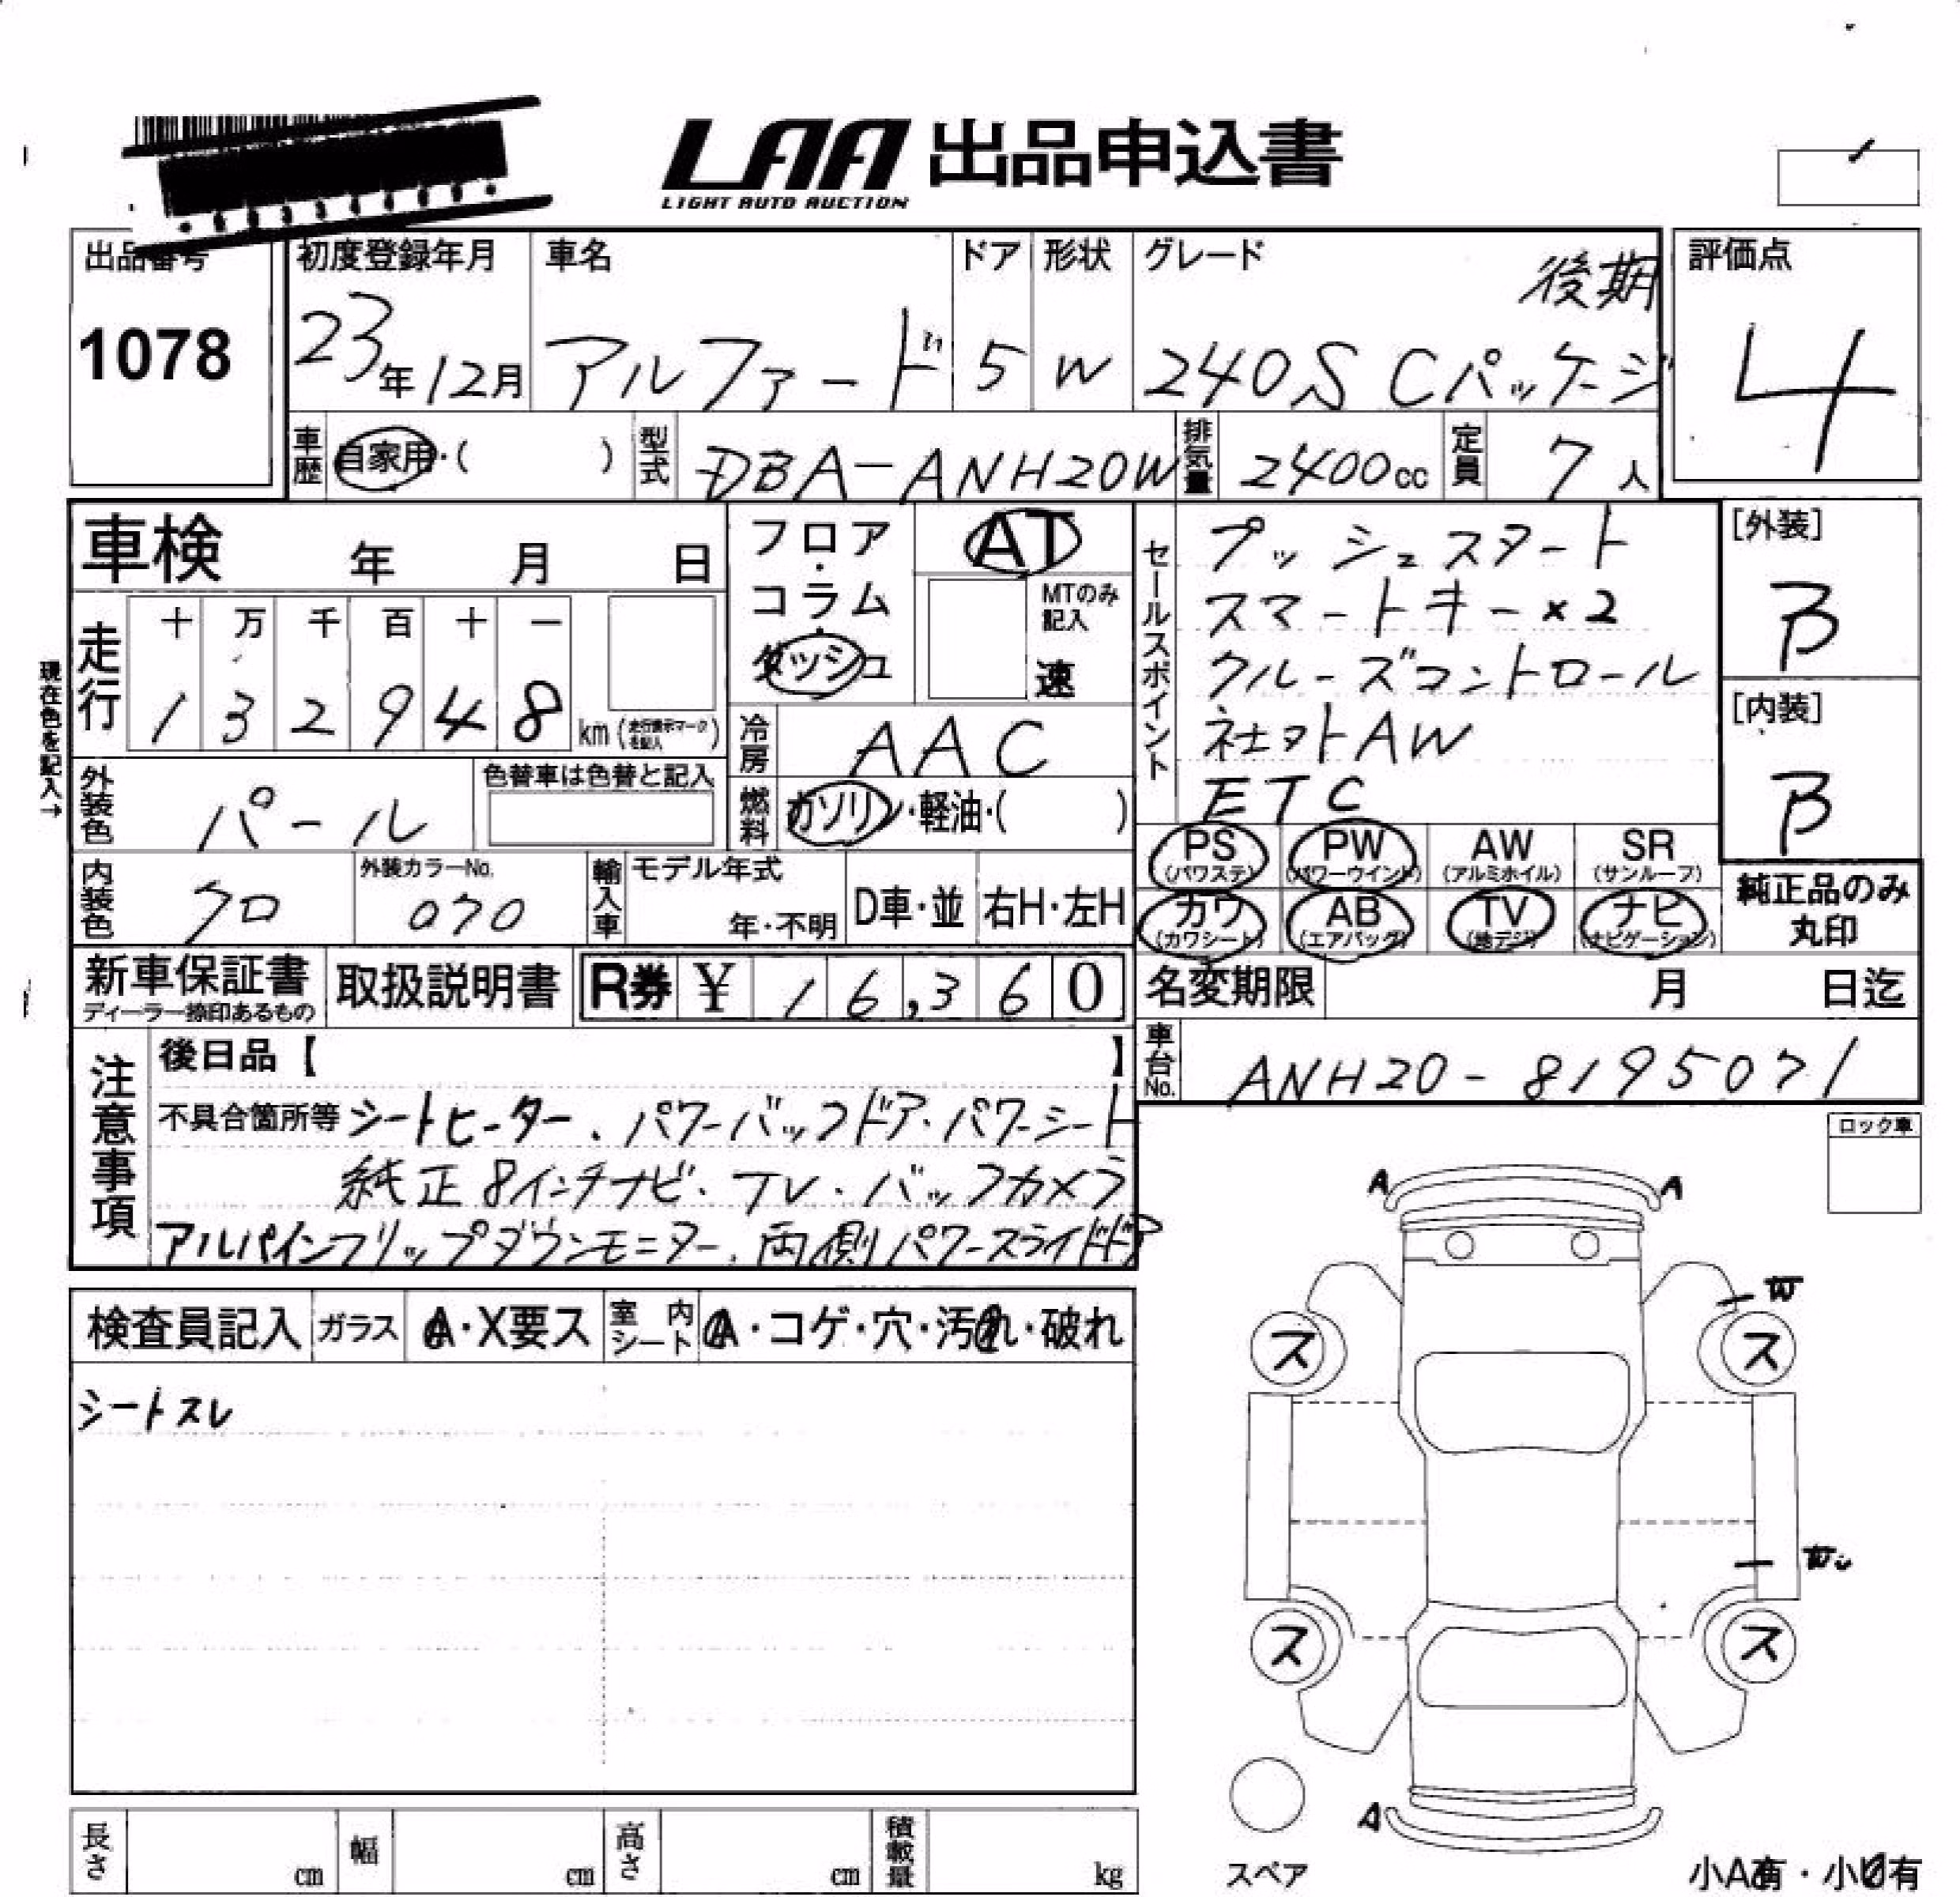 LAA 出品申込書
LIGHT AUTO AUCTION
出品番号
1078
初度登録年月
23年12月
車名
アルファード
ドア
5
形状
W
グレード
後期
240S Cパッケージ
評価点
4
車歴
自家用・( )
型式
DBA-ANH20W
排気量
2400cc
定員
7人
車検 年 月 日
現在色を記入→
走行
十 万 千 百 十 一
1 3 2 9 4 8
km (走行表示マークを記入)
外装色
パール
色替車は色替と記入
内装色
クロ
外装カラーNo.
070
輸入車
モデル年式
年・不明
D車・並
右H・左H
フロア・
コラム・
ダッシュ
AT
MTのみ
記入
速
冷房
AAC
燃料
ガソリン・軽油・( )
セールスポイント
プッシュスタート
スマートキー×2
クルーズコントロール
社外AW
ETC
[外装]
B
[内装]
B
PS PW AW SR
(パワステ) (パワーウインド) (アルミホイル) (サンルーフ)
カワ AB TV ナビ
(カワシート) (エアバッグ) (地デジ) (ナビゲーション)
純正品のみ
丸印
新車保証書
ディーラー捺印あるもの
取扱説明書
R券 ¥ 16,360
名変期限 月 日迄
車台No.
ANH20-8195071
注意事項
後日品【 】
不具合箇所等 シートヒーター、パワーバックドア・パワーシート
純正8インチナビ・TV・バックカメラ
アルパインフリップダウンモニター、両側パワースライドドア
ロック車
検査員記入
ガラス
A・X要ス
室内
シート
A・コゲ・穴・汚れ・破れ
シートスレ
A A
W
ス ス
ス ス
A
スペア
小A有・小U有
長さ cm
幅 cm
高さ cm
積載量 kg